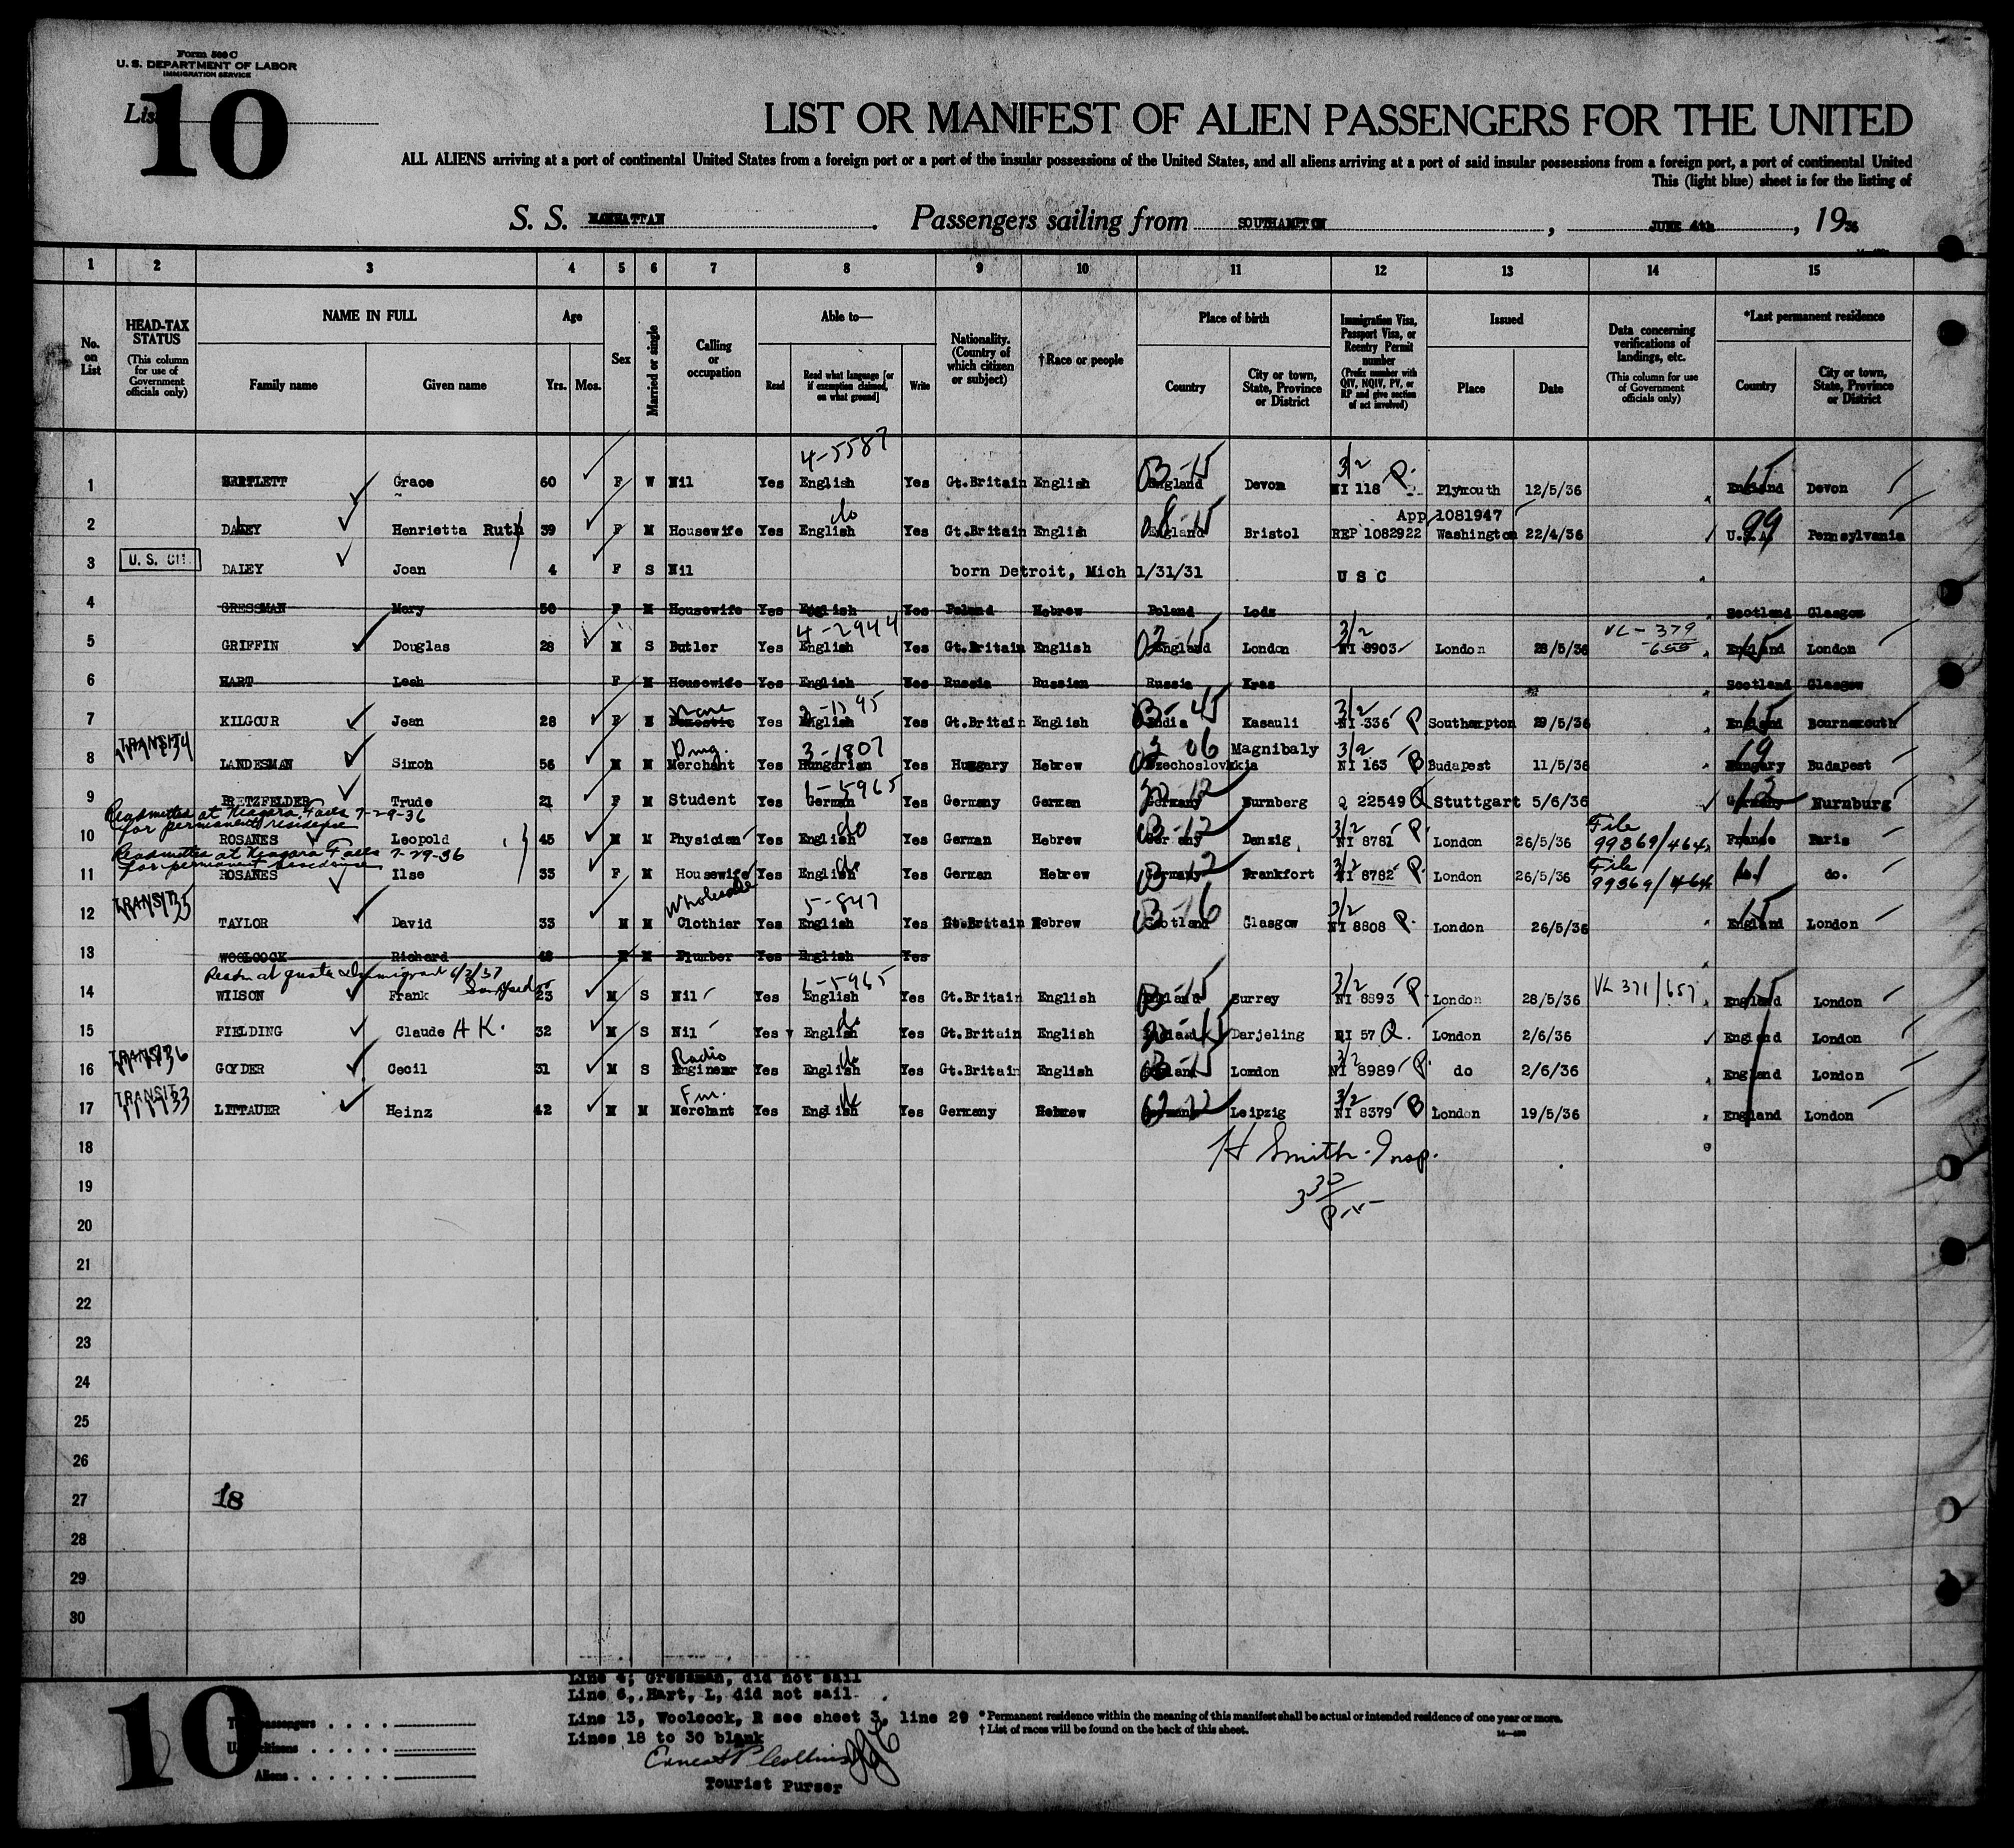 Form 500 C
U. S. DEPARTMENT OF LABOR
IMMIGRATION SERVICE
List 10
LIST OR MANIFEST OF ALIEN PASSENGERS FOR THE UNITED
ALL ALIENS arriving at a port of continental United States from a foreign port or a port of the insular possessions of the United States, and all aliens arriving at a port of said insular possessions from a foreign port, a port of continental United
This (light blue) sheet is for the listing of
S. S. MANHATTAN Passengers sailing from SOUTHAMPTON, JUNE 4th, 1936
1 2 3 4 5 6 7 8 9 10 11 12 13 14 15
No. on List
HEAD-TAX STATUS (This column for use of Government officials only)
NAME IN FULL Family name Given name
Age Yrs. Mos.
Sex
Married or single
Calling or occupation
Able to— Read Read what language [or if exemption claimed, on what ground] Write
Nationality. (Country of which citizen or subject)
†Race or people
Place of birth Country City or town, State, Province or District
Immigration Visa, Passport Visa, or Reentry Permit number (Prefix number with QIV, NQIV, PV, or RP and give section of act involved)
Issued Place Date
Data concerning verifications of landings, etc. (This column for use of Government officials only)
*Last permanent residence Country City or town, State, Province or District
4-5587 3/2
1 BARTLETT Grace 60 F W Nil Yes English Yes Gt.Britain English England Devon NI 118 P. Plymouth 12/5/36 England Devon
do App 1081947
2 DALEY Henrietta Ruth 39 F M Housewife Yes English Yes Gt.Britain English England Bristol REP 1082922 Washington 22/4/36 U.S.A. Pennsylvania
U. S. CIT.
3 DALEY Joan 4 F S Nil born Detroit, Mich 1/31/31 U S C
4 GRESSMAN Mary 50 F M Housewife Yes English Yes Poland Hebrew Poland Lodz Scotland Glasgow
4-2944 3/2 VL-379
5 GRIFFIN Douglas 28 M S Butler Yes English Yes Gt.Britain English England London NI 8903 London 28/5/36 England London
6 HART Leah F M Housewife Yes English Yes Russia Russian Russia Kras Scotland Glasgow
None 3/2
7 KILGOUR Jean 28 F Domestic Yes English Yes Gt.Britain English India Kasauli NI 336 P Southampton 29/5/36 England Bournemouth
TRANSIT Drug. 3-1807 06 Magnibaly 3/2
8 LANDESMAN Simon 56 M M Merchant Yes Hungarian Yes Hungary Hebrew Czechoslovakia NI 163 B Budapest 11/5/36 Hungary Budapest
1-5965
9 BRETZFELDER Trude 21 F M Student Yes German Yes Germany German Germany Nurnberg Q 22549 Q Stuttgart 5/6/36 Germany Nurnburg
Readmitted at Niagara Falls 7-29-36
for permanent residence do 3/2 File
10 ROSANES Leopold 45 M M Physician Yes English Yes German Hebrew Germany Danzig NI 8781 P London 26/5/36 99369/464 France Paris
Readmitted at Niagara Falls 7-29-36
for permanent residence do 3/2 File
11 ROSANES Ilse 33 F M Housewife Yes English Yes German Hebrew Germany Frankfort NI 8782 P. London 26/5/36 99369/464 do. do.
TRANSIT Wholesale 5-847 3/2
12 TAYLOR David 33 M M Clothier Yes English Yes Gt.Britain Hebrew Scotland Glasgow NI 8808 P. London 26/5/36 England London
13 WOOLCOCK Richard 48 M M Plumber Yes English Yes
1-5965 3/2 VL 371/657
14 WILSON Frank 23 M S Nil Yes English Yes Gt.Britain English England Surrey NI 8893 P London 28/5/36 England London
15 FIELDING Claude H K. 32 M S Nil Yes English Yes Gt.Britain English India Darjeling QI 57 Q. London 2/6/36 England London
TRANSIT Radio do 3/2
16 GOYDER Cecil 31 M S Engineer Yes English Yes Gt.Britain English England London NI 8989 P. do 2/6/36 England London
TRANSIT Fur. 3/2
17 LITTAUER Heinz 42 M M Merchant Yes English Yes Germany Hebrew Germany Leipzig NI 8379 B London 19/5/36 England London
18 H Smith. Insp.
19 3 30
20
21
22
23
24
25
26
27 18
28
29
30
Line 4; Gressman, did not sail
Line 6, Hart, L, did not sail
Line 13, Woolcock, R see sheet 3, line 29
Lines 18 to 30 blank
Tourist Purser
* Permanent residence within the meaning of this manifest shall be actual or intended residence of one year or more.
† List of races will be found on the back of this sheet.
10
passengers
citizens
Aliens